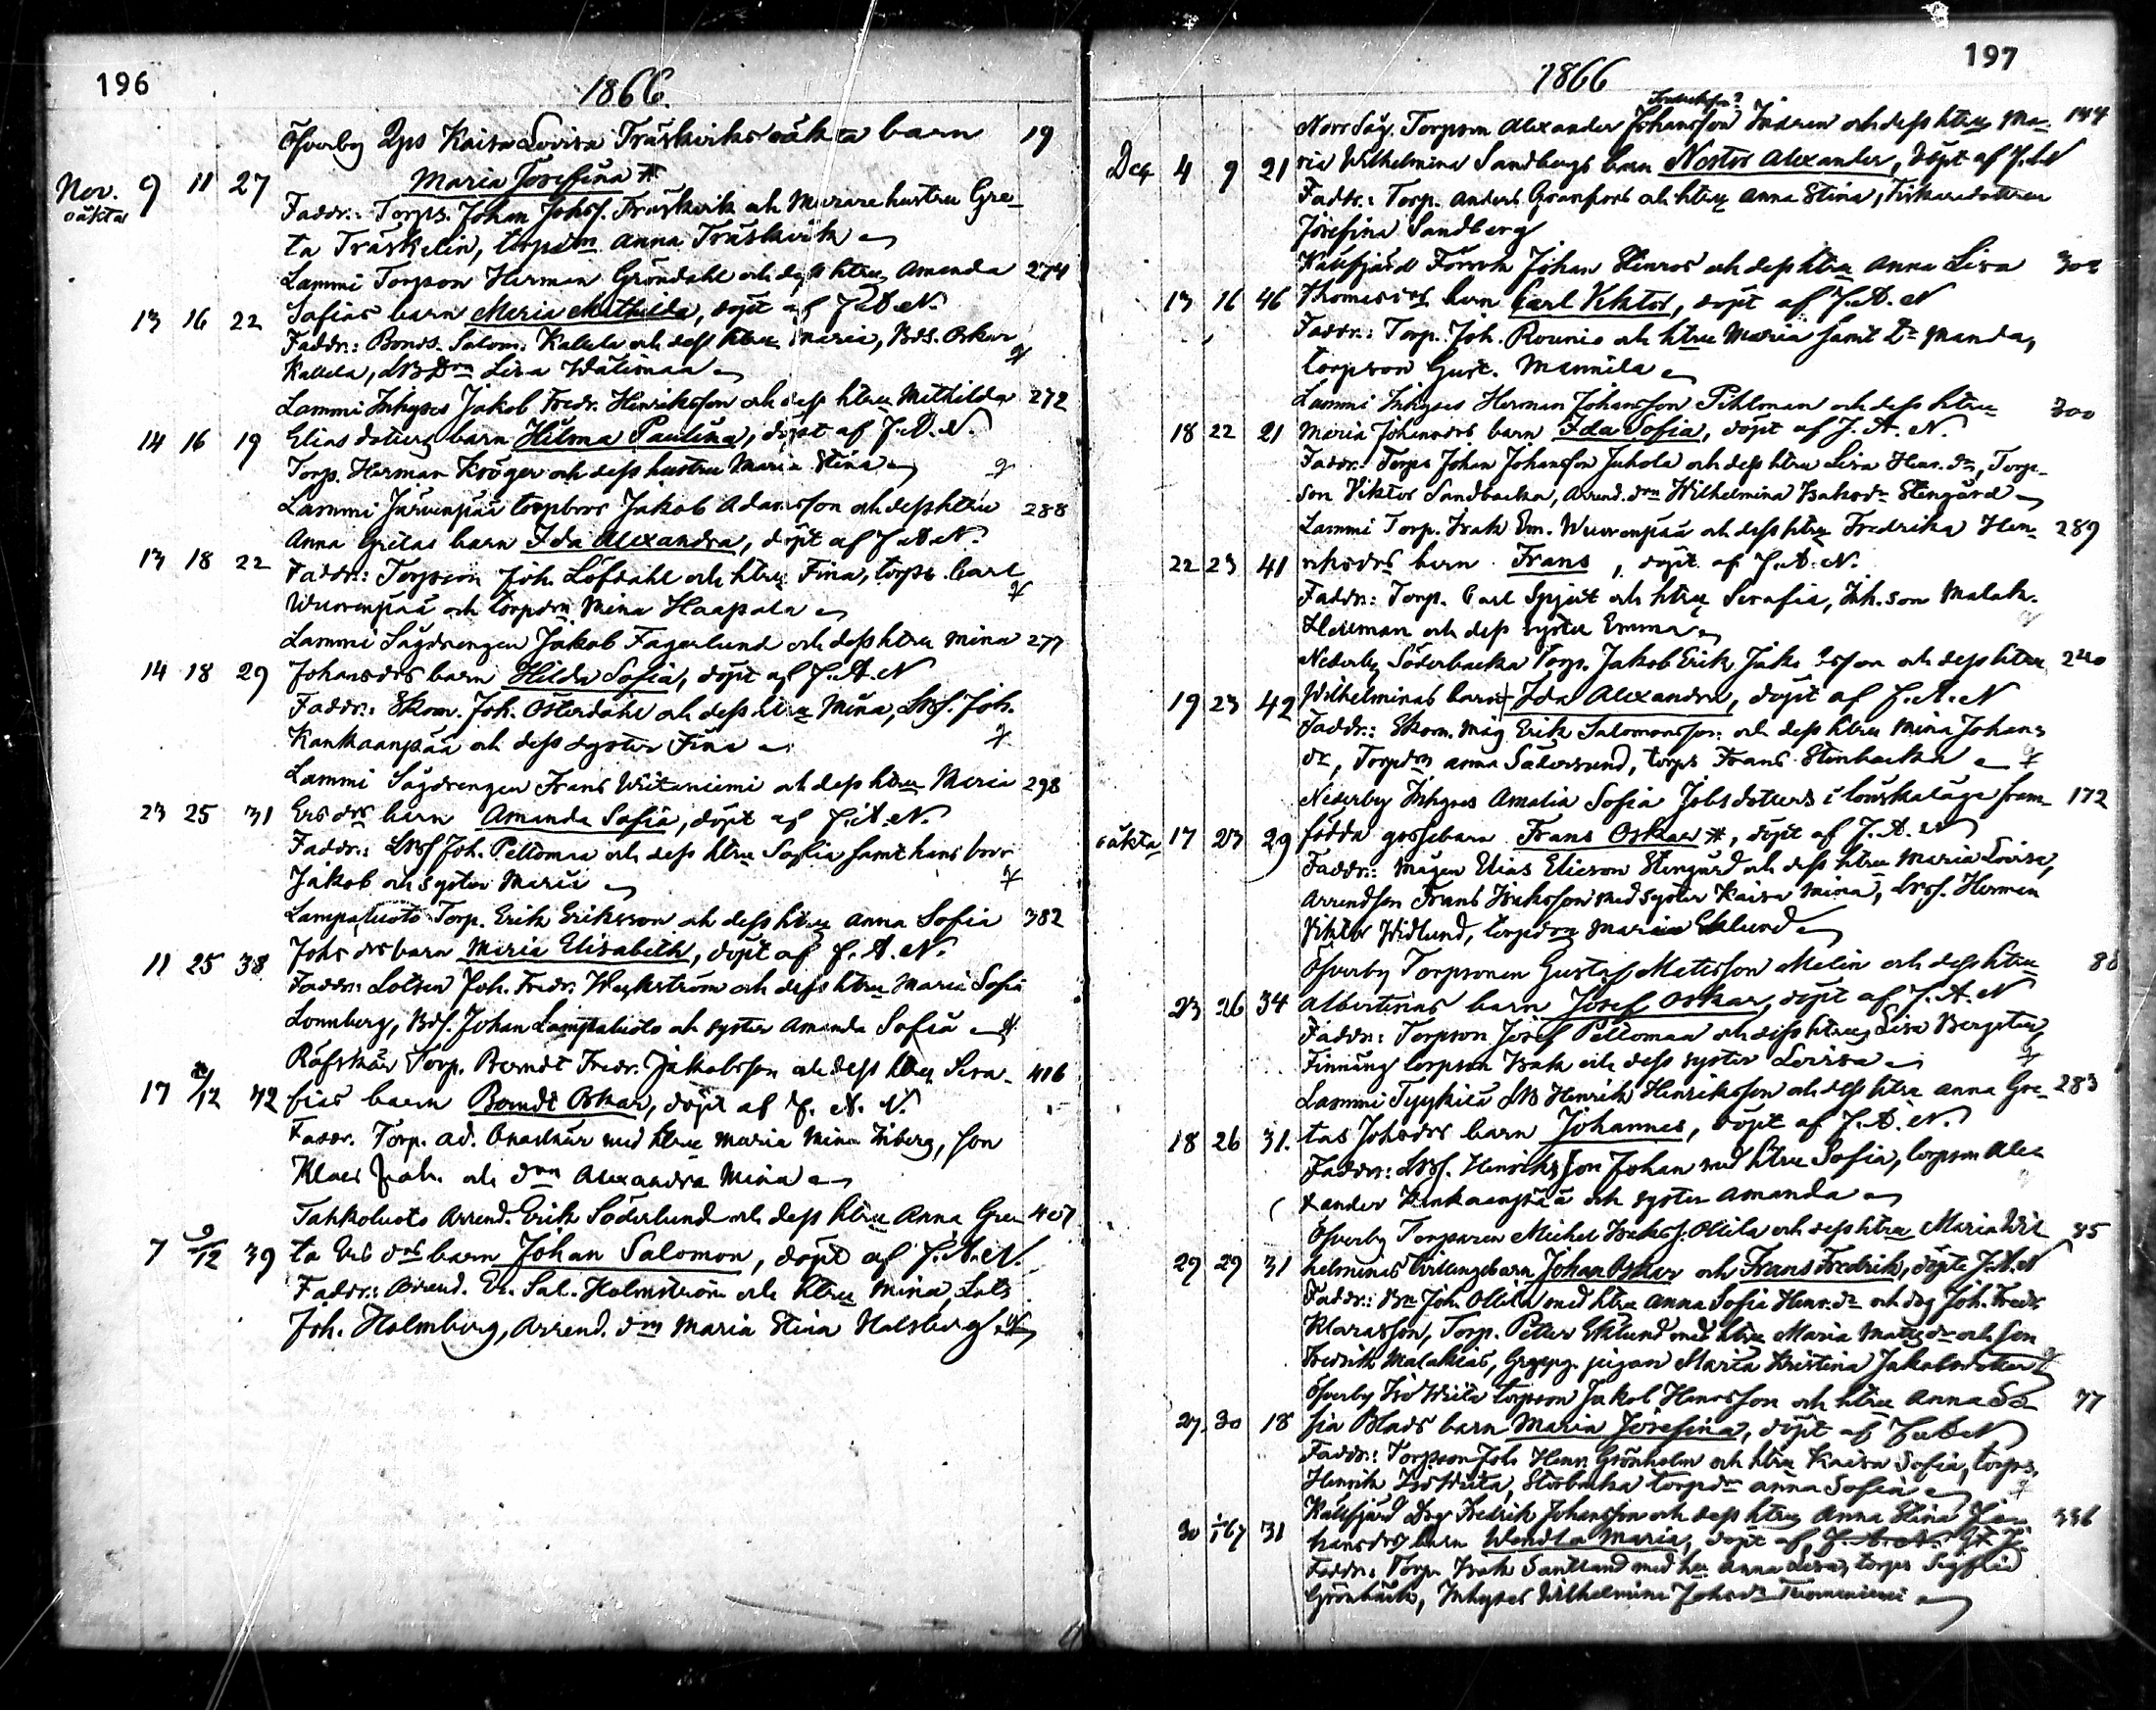 196
1866.
Öfverby Qps Kaisa Lovisa Träskviks oäkta barn 19
Nov. 9 11 27 Maria Josefina
oäkta Faddr.: Torps. Johan Johsf. Träskvik och Murarehustru Gre-
ta Träskelin, torpdm Anna Träskvik
Lammi Torpson Herman Gröndahl och dess htru Amanda 274
13 16 22 Sofias barn Maria Mathilda, döpt af J.A.N.
Faddr.: Bonds. Salom. Kallela och dess htru Maria, Bds. Oskar
Kallela, Lisa
Lammi Inhyses Jakob Fredr. Henriksson och dess htru Mathilda 272
14 16 19 Elias dotters barn Hilma Paulina, döpt af J.A.N.
Torp. Herman Kröger och dess hustru Maria Stina
Lammi Järvenpää torpbros Jakob Adamsson och dess htru 288
Anna Gretas barn Ida Alexandra, döpt af J.A.N.
13 18 22 Faddr.: Torpson Joh. Löfdahl och htru Fina, torps. Carl
Wuorenpää och torpdrn Mina Haapala
Lammi Sågdrengen Jakob Fagerlund och dess htru Mina 277
14 18 29 Johansdrs barn Hilda Sofia, döpt af J.A.N
Faddr.: Skom. Joh. Österdahl och dess htru Mina, Joh.
Kankaanpää och dess syster Fina
Lammi Sågdrengen Frans Writaniemi och dess htru Maria 298
23 25 31 Ersdrs barn Amanda Sofia, döpt af J.A.N.
Faddr.: Joh. Peltomaa och dess htru Sofia samt hans bror
Jakob och syster Maria
Lampaluoto Torp. Erik Eriksson och dess htru Anna Sofia 382
11 25 38 Johs drs barn Maria Elisabeth, döpt af J.A.N.
Faddr.: Lotsen Joh. Fredr. Weckström och dess htru Maria Sofia
Lonnberg, Bds. Johan Lampaluoto och syster Amanda Sofia
Räfskär Torp. Berndt Fredr. Jakobsson och dess htru Sera- 416
17 2/12 42 fias barn Berndt Oskar, döpt af J.A.N.
Faddr. Torp. Ad. med htru Maria Mina Inberg, son
Klaes Joh. och drn Alexandra Mina
Tahkoluoto Arrend. Erik Söderlund och dess htru Anna Gre- 407
7 9/12 39 ta Ers drs barn Johan Salomon, döpt af J.A.N.
Faddr.: Arrend. Er. Sal. Holmström och htru Mina, Lots
Joh. Holmberg, Arrend. drn Maria Stina Halsberg
197
1866
Fredriksson?
Norr Säg. Torpson Alexander Johansson och dess htru Ma- 144
Dec. 4 9 21 ria Wilhelmina Sandbergs barn Nestor Alexander, döpt af J.A.N
Faddr.: Torp. Anders Granfors och htru Anna Stina, Fiskaredottren
Josefina Sandberg
Källfjärd Johan Stenros och dess htru Anna Lisa 302
13 16 46 Thomasdrs barn Carl Viktor, döpt af J.A.N
Faddr.: Torp. Joh. Rounio och htru Maria samt Dr Manda,
torpson Gust. Mannila
Lammi Inhyses Herman Johansson Pihlman och dess htru 300
18 22 21 Maria Johansdrs barn Ida Sofia, döpt af J.A.N.
Faddr.: Torps Johan Johansson Juhola och dess htru Lisa Henr. dr, Torp-
son Viktor Sandbacka, Arrend. drn Wilhelmina Isaksdr Stengård
Lammi Torp. Isak Em. Wuorenpää och dess htru Fredrika Hen- 289
22 23 41 riksdrs barn Frans, döpt af J.A.N.
Faddr.: Torp. Carl Spjut och htru Serafia, Inh. son Malak.
och dess syster Emma
Nederby Söderbacka Torp. Jakob Erik Jakobsson och dess htru 240
19 23 42 Wilhelminas barn Ida Alexandra, döpt af J.A.N
Faddr.: Skom. Måg Erik Salomonsson och dess htru Mina Johans
dr, Torpdrn Anna Södersund, torps Frans Stenbacka
Nederby Inhyses Amalia Sofia Johsdotters i lönskaläge fram- 172
oäkta 17 23 29 födda gossebarn Frans Oskar, döpt af J.A.N
Faddr.: Mågen Elias Elieson Stengård och dess htru Maria Lovisa,
Arrendson Frans Isaksson med syster Kaisa Mina, Herman
Viktor Widlund, torpdrn Maria Eklund
Öfverby Torpsonen Gustaf Matsson Melin och dess htru 88
23 26 34 Albertinas barn Josef Oskar, döpt af J.A.N
Faddr.: Torpson Josef Peltomaa och dess htru Lisa Bergsten,
torpson Isak och dess syster Lovisa
Lammi Tyykilä Henrik Henriksson och dess htru Anna Gre- 283
18 26 31. tas Johsdrs barn Johannes, döpt af J.A.N.
Faddr.: Henriksson Johan med htru Sofia, torpson Alex
xander Kankaanpää och syster Amanda
Öfverby Torparen Michel Isakss. Ollila och dess htru Maria Wil 35
29 29 31 helminas tvillingebarn Johan Oskar och Frans Fredrik, döpte J.A.N
Faddr.: Joh. Ollila med htru Anna Sofia Henr. dr och Joh. Fredr.
Klarasson, Torp. Peter Eklund med htru Maria Matsdr och son
Fredrik Malakias, pigan Maria Kristina Jakobsdotter
Öfverby Iso Writa torpson Jakob Henrsson och htru Anna So- 77
27 30 18 fia Blads barn Maria Josefina, döpt af J.A.N
Faddr.: Torpson Johs Henr. Grönholm och htru Kaisa Sofia, torps.
Henrik Iso Writa, Storbacka torpdr Anna Sofia
Källfjärd Drg Fredrik Johansson och dess htru Anna Stina Jo- 336
30 1/1 67 31 hansdrs barn Wendla Maria, döpt af J.A.N.
Faddr.: Torp. Isak Santland med hu Anna Lisa, torps Sigfrid
Grönbäck, Inhyses Wilhelmina Johsdr Tuomeniemi